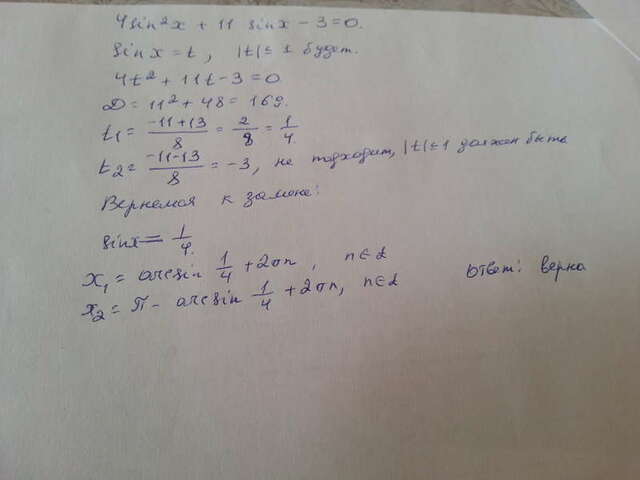 4sin²x + 11 sinx - 3 = 0.
sinx = t, |t| ≤ 1 будет.
4t² + 11t - 3 = 0
D = 11² + 48 = 169.
t₁ = \frac{-11+13}{8} = \frac{2}{8} = \frac{1}{4}.
t₂ = \frac{-11-13}{8} = -3, не подходит, |t| ≤ 1 должен быть
Вернемся к замене:
sinx = \frac{1}{4}.
x₁ = arcsin \frac{1}{4} + 2πn, n∈Z
x₂ = π - arcsin \frac{1}{4} + 2πn, n∈Z Ответ: верно